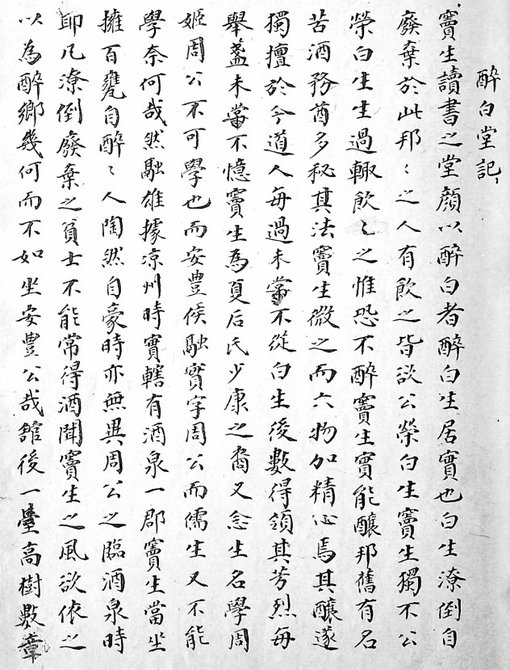 醉白堂記
竇生讀書之堂顏以醉白者醉白生居實也白生潦倒自
廢棄於此邦〻之人有飲之皆欲公榮白生竇生獨不公
榮白生生過輒飲〻之惟恐不醉竇生實能釀邦舊有名
苦酒務酋多秘其法竇生微之而六物加精心焉其釀遂
獨擅於今道人每過未嘗不從白生後數得領其芳烈每
舉盞未嘗不憶竇生為夏后氏少康之裔又念生名學周
姬周公不可學也而安豊侯融實字周公而儒生又不能
學奈何哉然融雄據涼州時實轄有酒泉一郡竇生當坐
擁百甕自醉〻人陶然自豪時亦無異周公之臨酒泉時
即凡潦倒廢棄之貧士不能常得酒聞竇生之風欲依之
以為醉鄉幾何而不如坐安豊公哉舘後一壘高樹數章